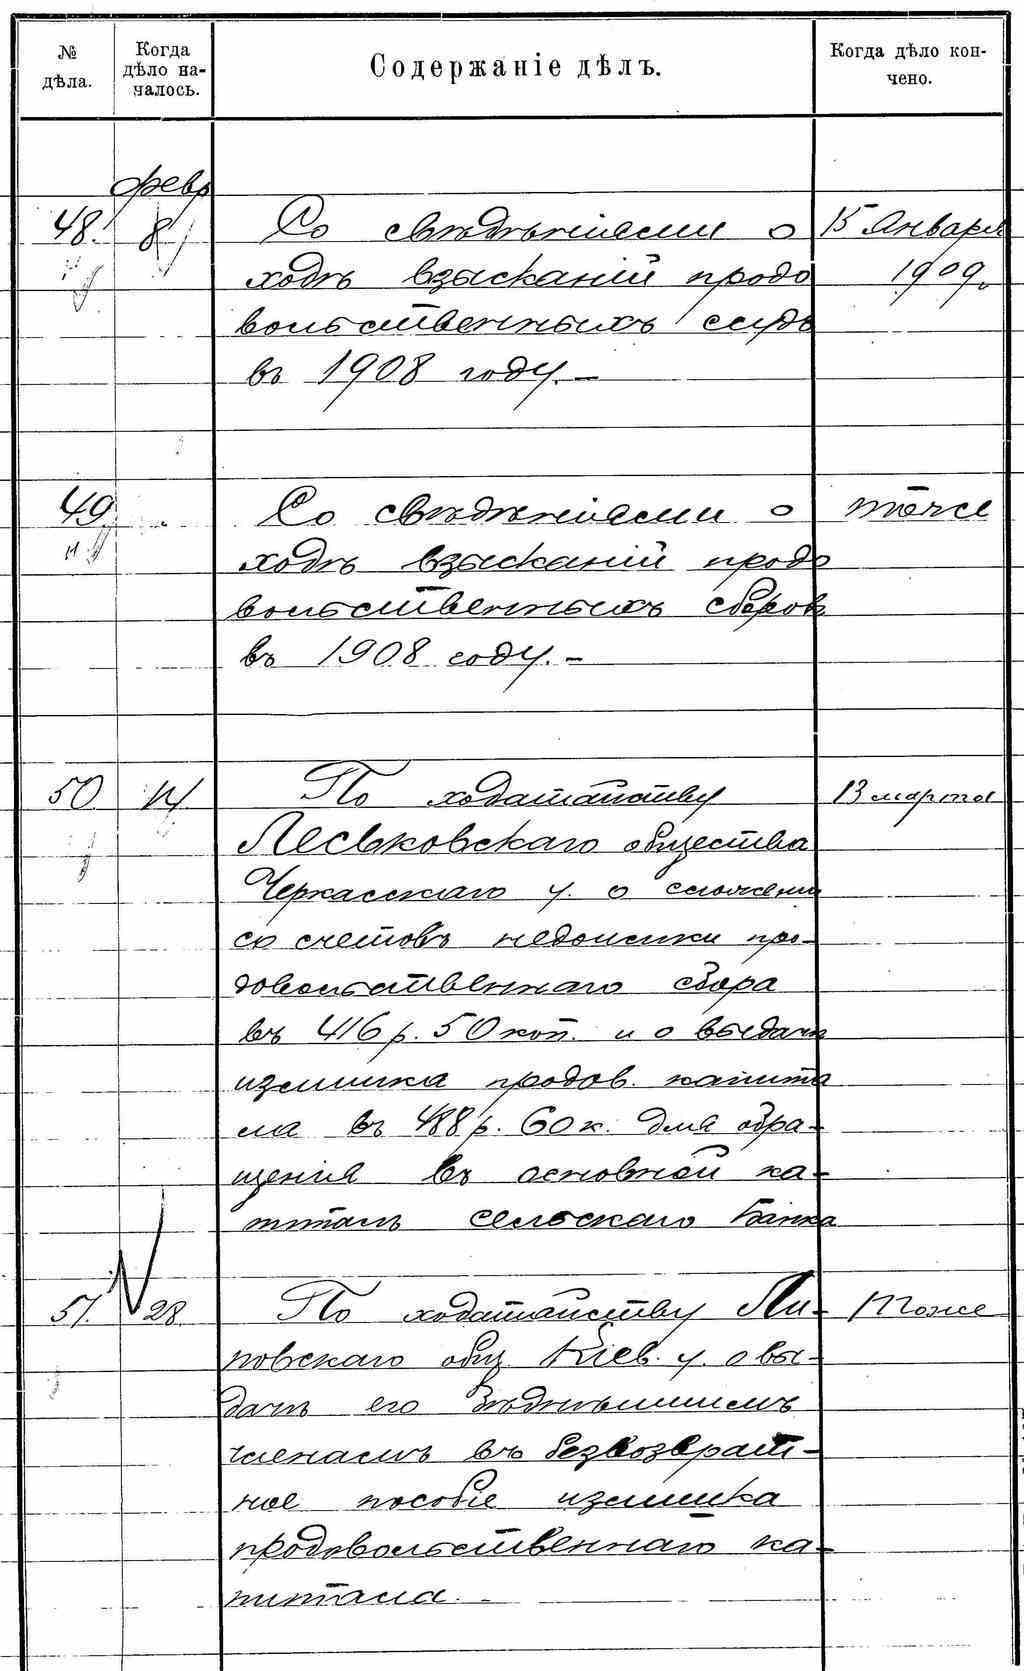 № дѣла.
Когда дѣло на-
чалось.
Содержаніе дѣлъ.
Когда дѣло кон-
чено.
февр
48. 8 Со свѣдѣніями о 15 Января
ходѣ взысканій продо 1909.
вольственныхъ ссудъ
въ 1908 году.-
49 Со свѣдѣніями о тоже
ходѣ взысканій продо
вольственныхъ сборов
въ 1908 году.-
50. 14 По ходатайству 13 марта
Леськовскаго общества
Черкасскаго у. о сложени
со счетовъ недоимки про-
довольственнаго сбора
въ 416 р. 50 коп. и о выдачѣ
излишка продов. капита
ла въ 488 р. 60 к. для обра-
щенія въ основной ка-
питалъ сельскаго Банка
51. 28. По ходатайству Ли- Тоже
повскаго общ. Кіев. у. о вы-
дачѣ его бѣднѣйшимъ
членамъ въ безвозврат-
ное пособіе излишка
продовольственнаго ка-
питала.